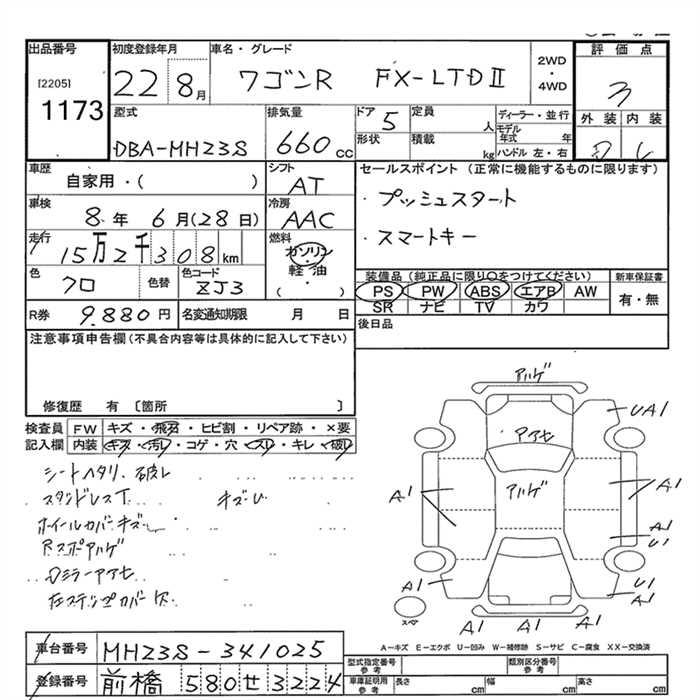 出品番号 初度登録年月 車名・グレード 評価点
[2205] 1173
22 8月 ワゴンR FX-LTDⅡ 2WD・4WD 3
型式 排気量 ドア 定員 ディーラー・並行 外装 内装
DBA-MH23S 660cc 5 人 モデル年式 年
形状 積載 kg ハンドル 左・右
車歴 シフト セールスポイント (正常に機能するものに限ります)
自家用・( ) AT ・プッシュスタート
車検 冷房
8年 6月(28日) AAC ・スマートキー
走行 燃料
15万2千308km ガソリン・軽油 ( )
色 色替 色コード 装備品(純正品に限り○をつけてください) 新車保証書
クロ ZJ3 PS PW ABS エアB AW 有・無
SR ナビ TV カワ
R券 9.880円 名変通知期限 月 日 後日品
注意事項申告欄(不具合内容等は具体的に記入して下さい)
修復歴 有 〔箇所 〕
検査員記入欄 FW キズ・飛石・ヒビ割・リペア跡・×要
内装 キズ・汚レ・コゲ・穴・スレ・キレ・破レ
シートヘタリ、破レ
スタッドレスT キズU
ホイールカバーキズ
Rスポアルゲ
Dミラーアアセ
左ステップカバー欠
アルゲ
UA1
アアセ
アルゲ
A1 A1
A1
U1
A1 U1
A1
スペア A1 A1
A-キズ E-エクボ U-凹み W-補修跡 S-サビ C-腐食 XX-交換済
車台番号 MH23S-341025
登録番号 前橋 580せ3224
型式指定番号 参考 類別区分番号 参考
車庫証明用 参考 長さ cm 幅 cm 高さ cm